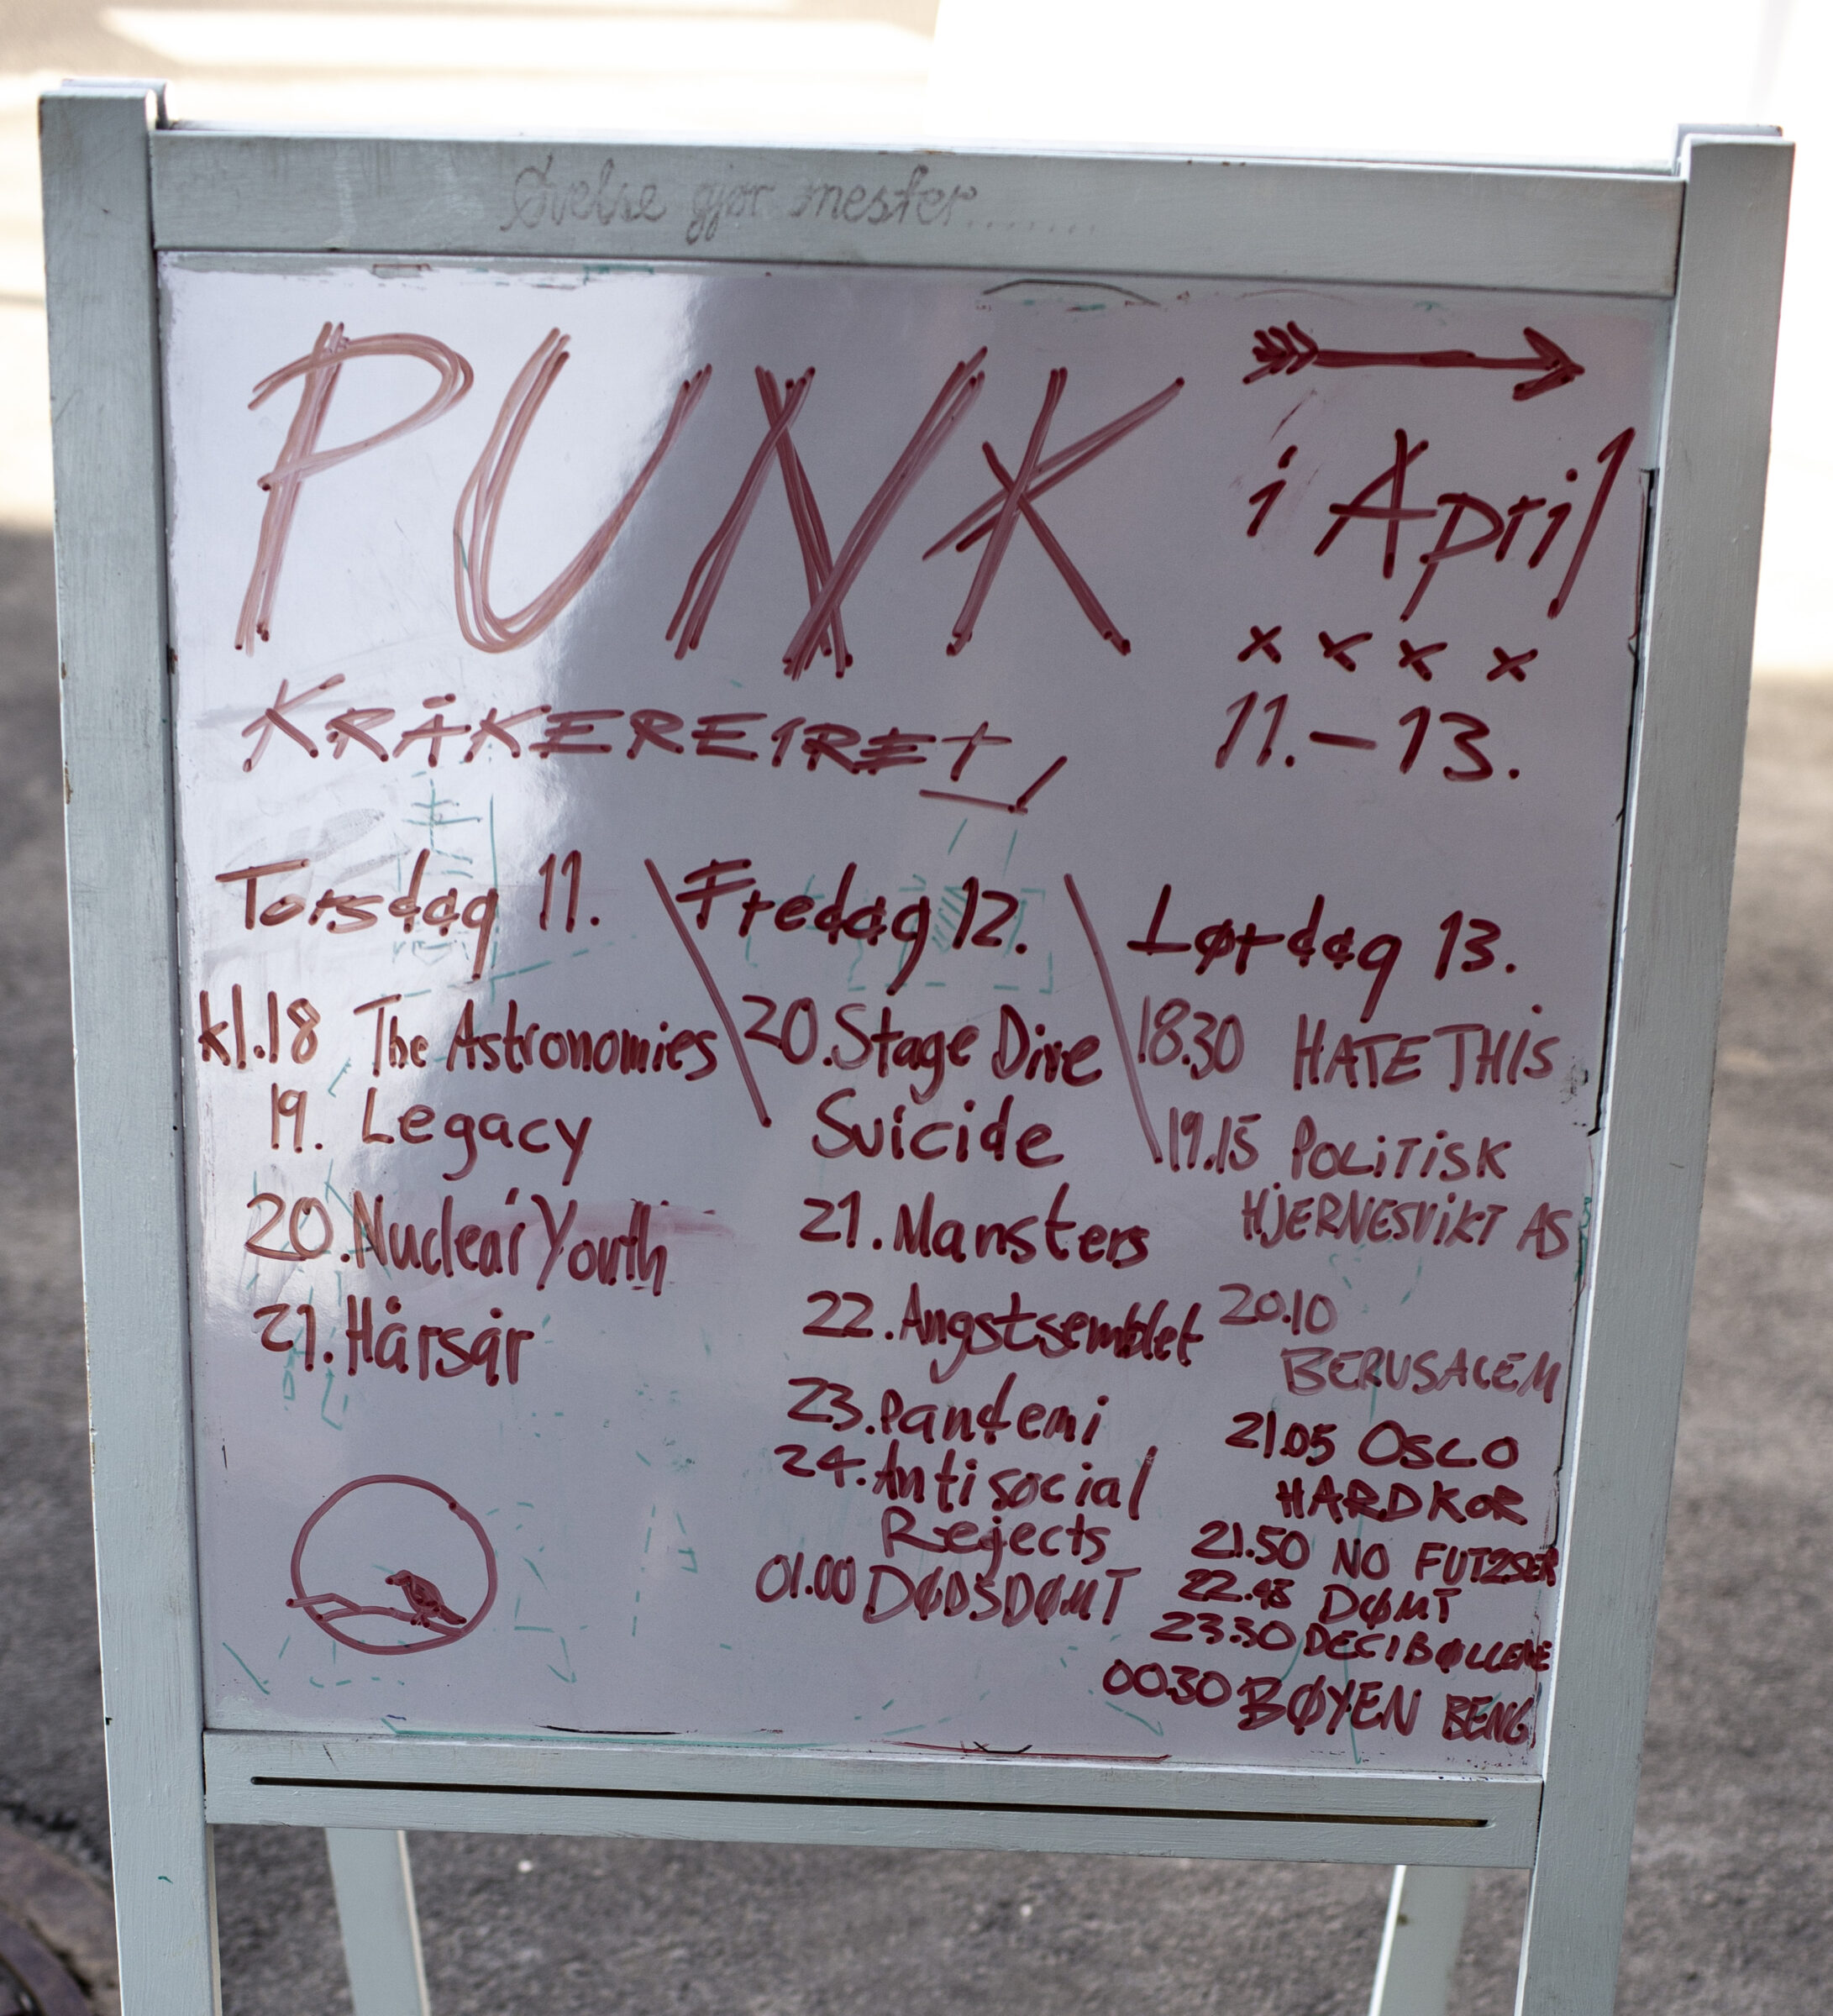 Øvelse gjør mester........
PUNK
i April
x x x x
KRÅKEREIRET
11.-13.
Torsdag 11.
kl.18 The Astronomies
19. Legacy
20. Nuclear Youth
21. Hårsår
Fredag 12.
20. Stage Dive
Suicide
21. Mansters
22. Angstsemblet
23. Pandemi
24. Antisocial
Rejects
01.00 DØDSDØMT
Lørdag 13.
18.30 HATE THiS
19.15 POLiTiSK
HJERNESViKT AS
20.10
BERUSALEM
21.05 OSLO
HARDKOR
21.50 NO FUTZSER
22.45 DØMT
23.30 DECIBØLLENE
00.30 BØYEN BENG